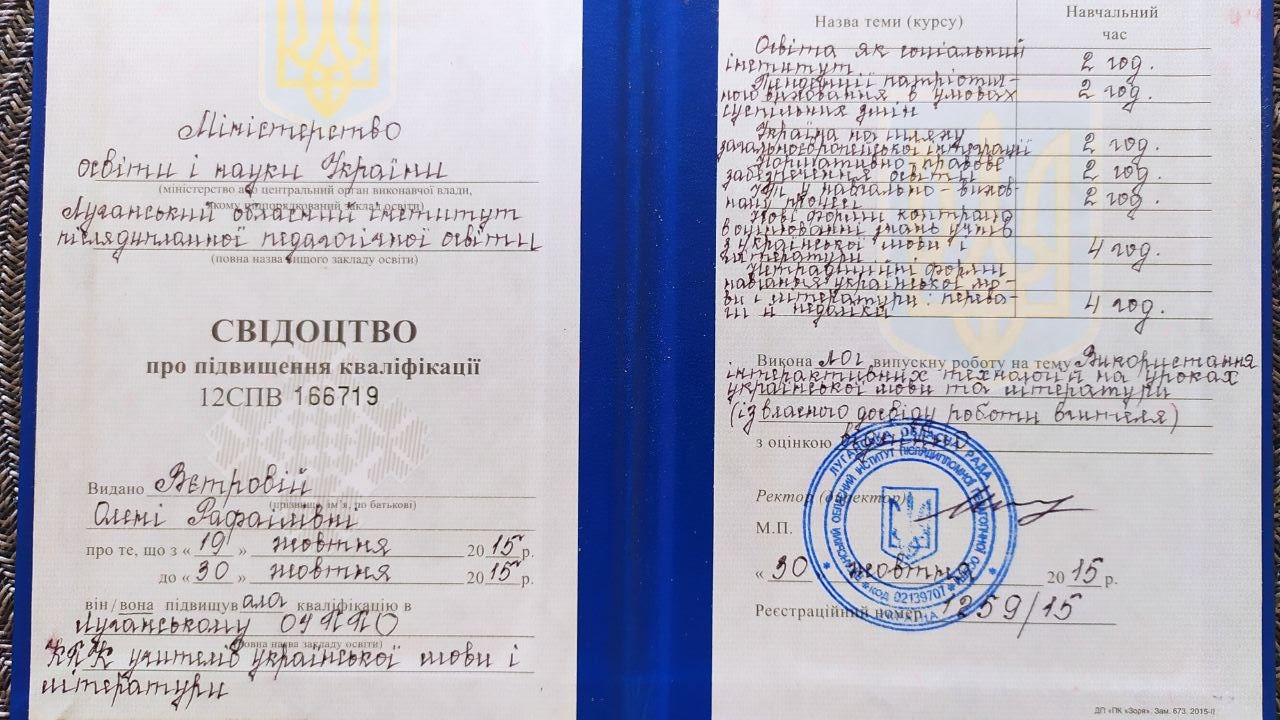 Міністерство
освіти і науки України
(міністерство або центральний орган виконавчої влади,
якому підпорядкований заклад освіти)
Луганський обласний інститут
післядипломної педагогічної освіти
(повна назва вищого закладу освіти)
СВІДОЦТВО
про підвищення кваліфікації
12СПВ 166719
Видано Вєтровій
(прізвище, ім'я, по батькові)
Олені Рафаілівні
про те, що з « 19 » жовтня 2015 р.
до « 30 » жовтня 2015 р.
він/вона підвищувала кваліфікацію в
Луганському ОІППО
(повна назва закладу освіти)
КПК учителів української мови і
літератури
Назва теми (курсу) Навчальний
час
Освіта як соціальний
інститут 2 год.
Тенденції патріотич-
ного виховання в умовах 2 год.
суспільних змін
Україна на шляху
загальноєвропейської інтеграції 2 год.
Нормативно-правове
забезпечення освіти 2 год.
у навчально-вихов-
ному процесі 2 год.
Нові форми контролю
в оцінюванні знань учнів
з української мови і 4 год.
літератури
Нетрадиційні форми
навчання української мо-
ви і літератури: перева-
ги й недоліки 4 год.
Виконала випускну роботу на тему Використання
інтерактивних технологій на уроках
української мови та літератури
(із власного досвіду роботи вчителя)
з оцінкою
Ректор (директор)
М.П.
« 30 » жовтня 2015 р.
Реєстраційний номер 1259/15
ЛУГАНСЬКА ОБЛАСНА РАДА
ЛУГАНСЬКИЙ ОБЛАСНИЙ ІНСТИТУТ ПІСЛЯДИПЛОМНОЇ ПЕДАГОГІЧНОЇ ОСВІТИ
КОД 02139707
УКРАЇНА
ДП «ПК «Зоря». Зам. 673. 2015-ІІ